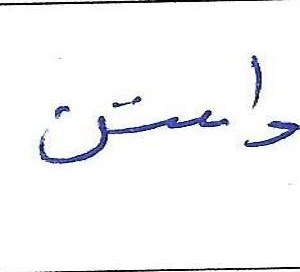 داستن